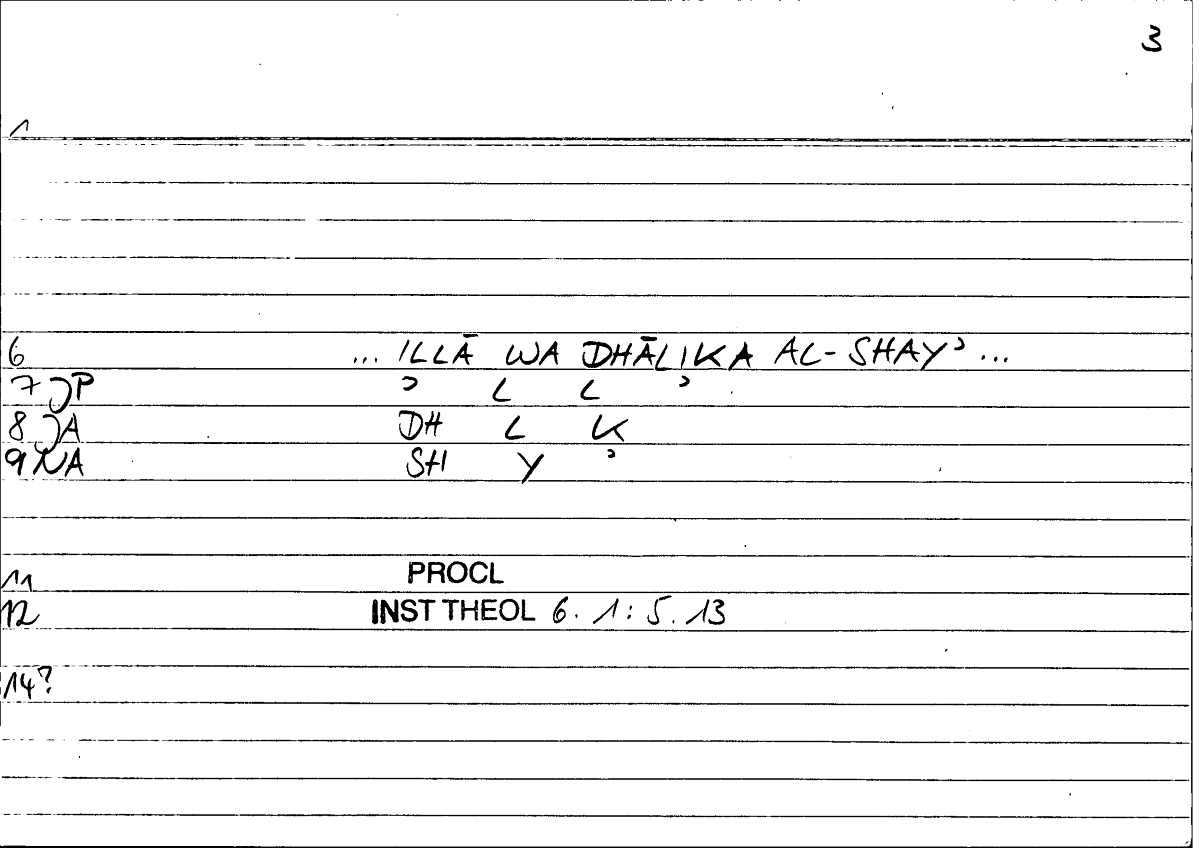 3
1
6 ... ILLĀ WA DHĀLIKA AL-SHAYʾ ...
7 JP ʾ L L ʾ
8 JA DH L K
9 NA SH Y ʾ
11 PROCL
12 INST THEOL 6. 1: 5. 13
14?